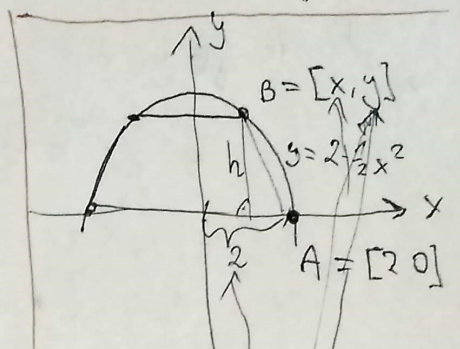 y
B = [x, y]
h
y = 2 - 1/2 x²
x
2
A = [2 0]